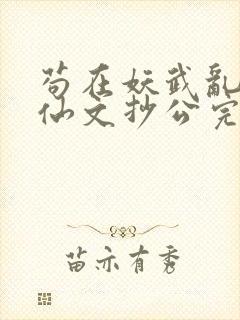 苟在妖武亂
仙文抄公完
苗亦有秀